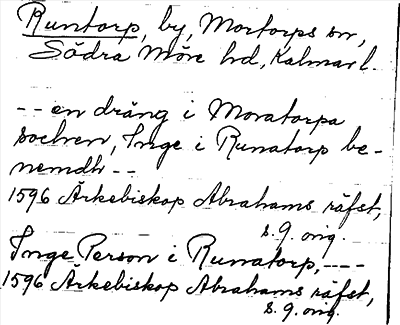 Runtorp, by, Mortorps sn,
Södra Möre hd, Kalmar l.
-- en dräng i Moratorpa
sochren, Inge i Runatorp be-
nemdh --
1596 Ärkebiskop Abrahams räfst,
s. 9. orig.
Inge Person i Runatorp, ----
1596 Ärkebiskop Abrahams räfst,
s. 9. orig.